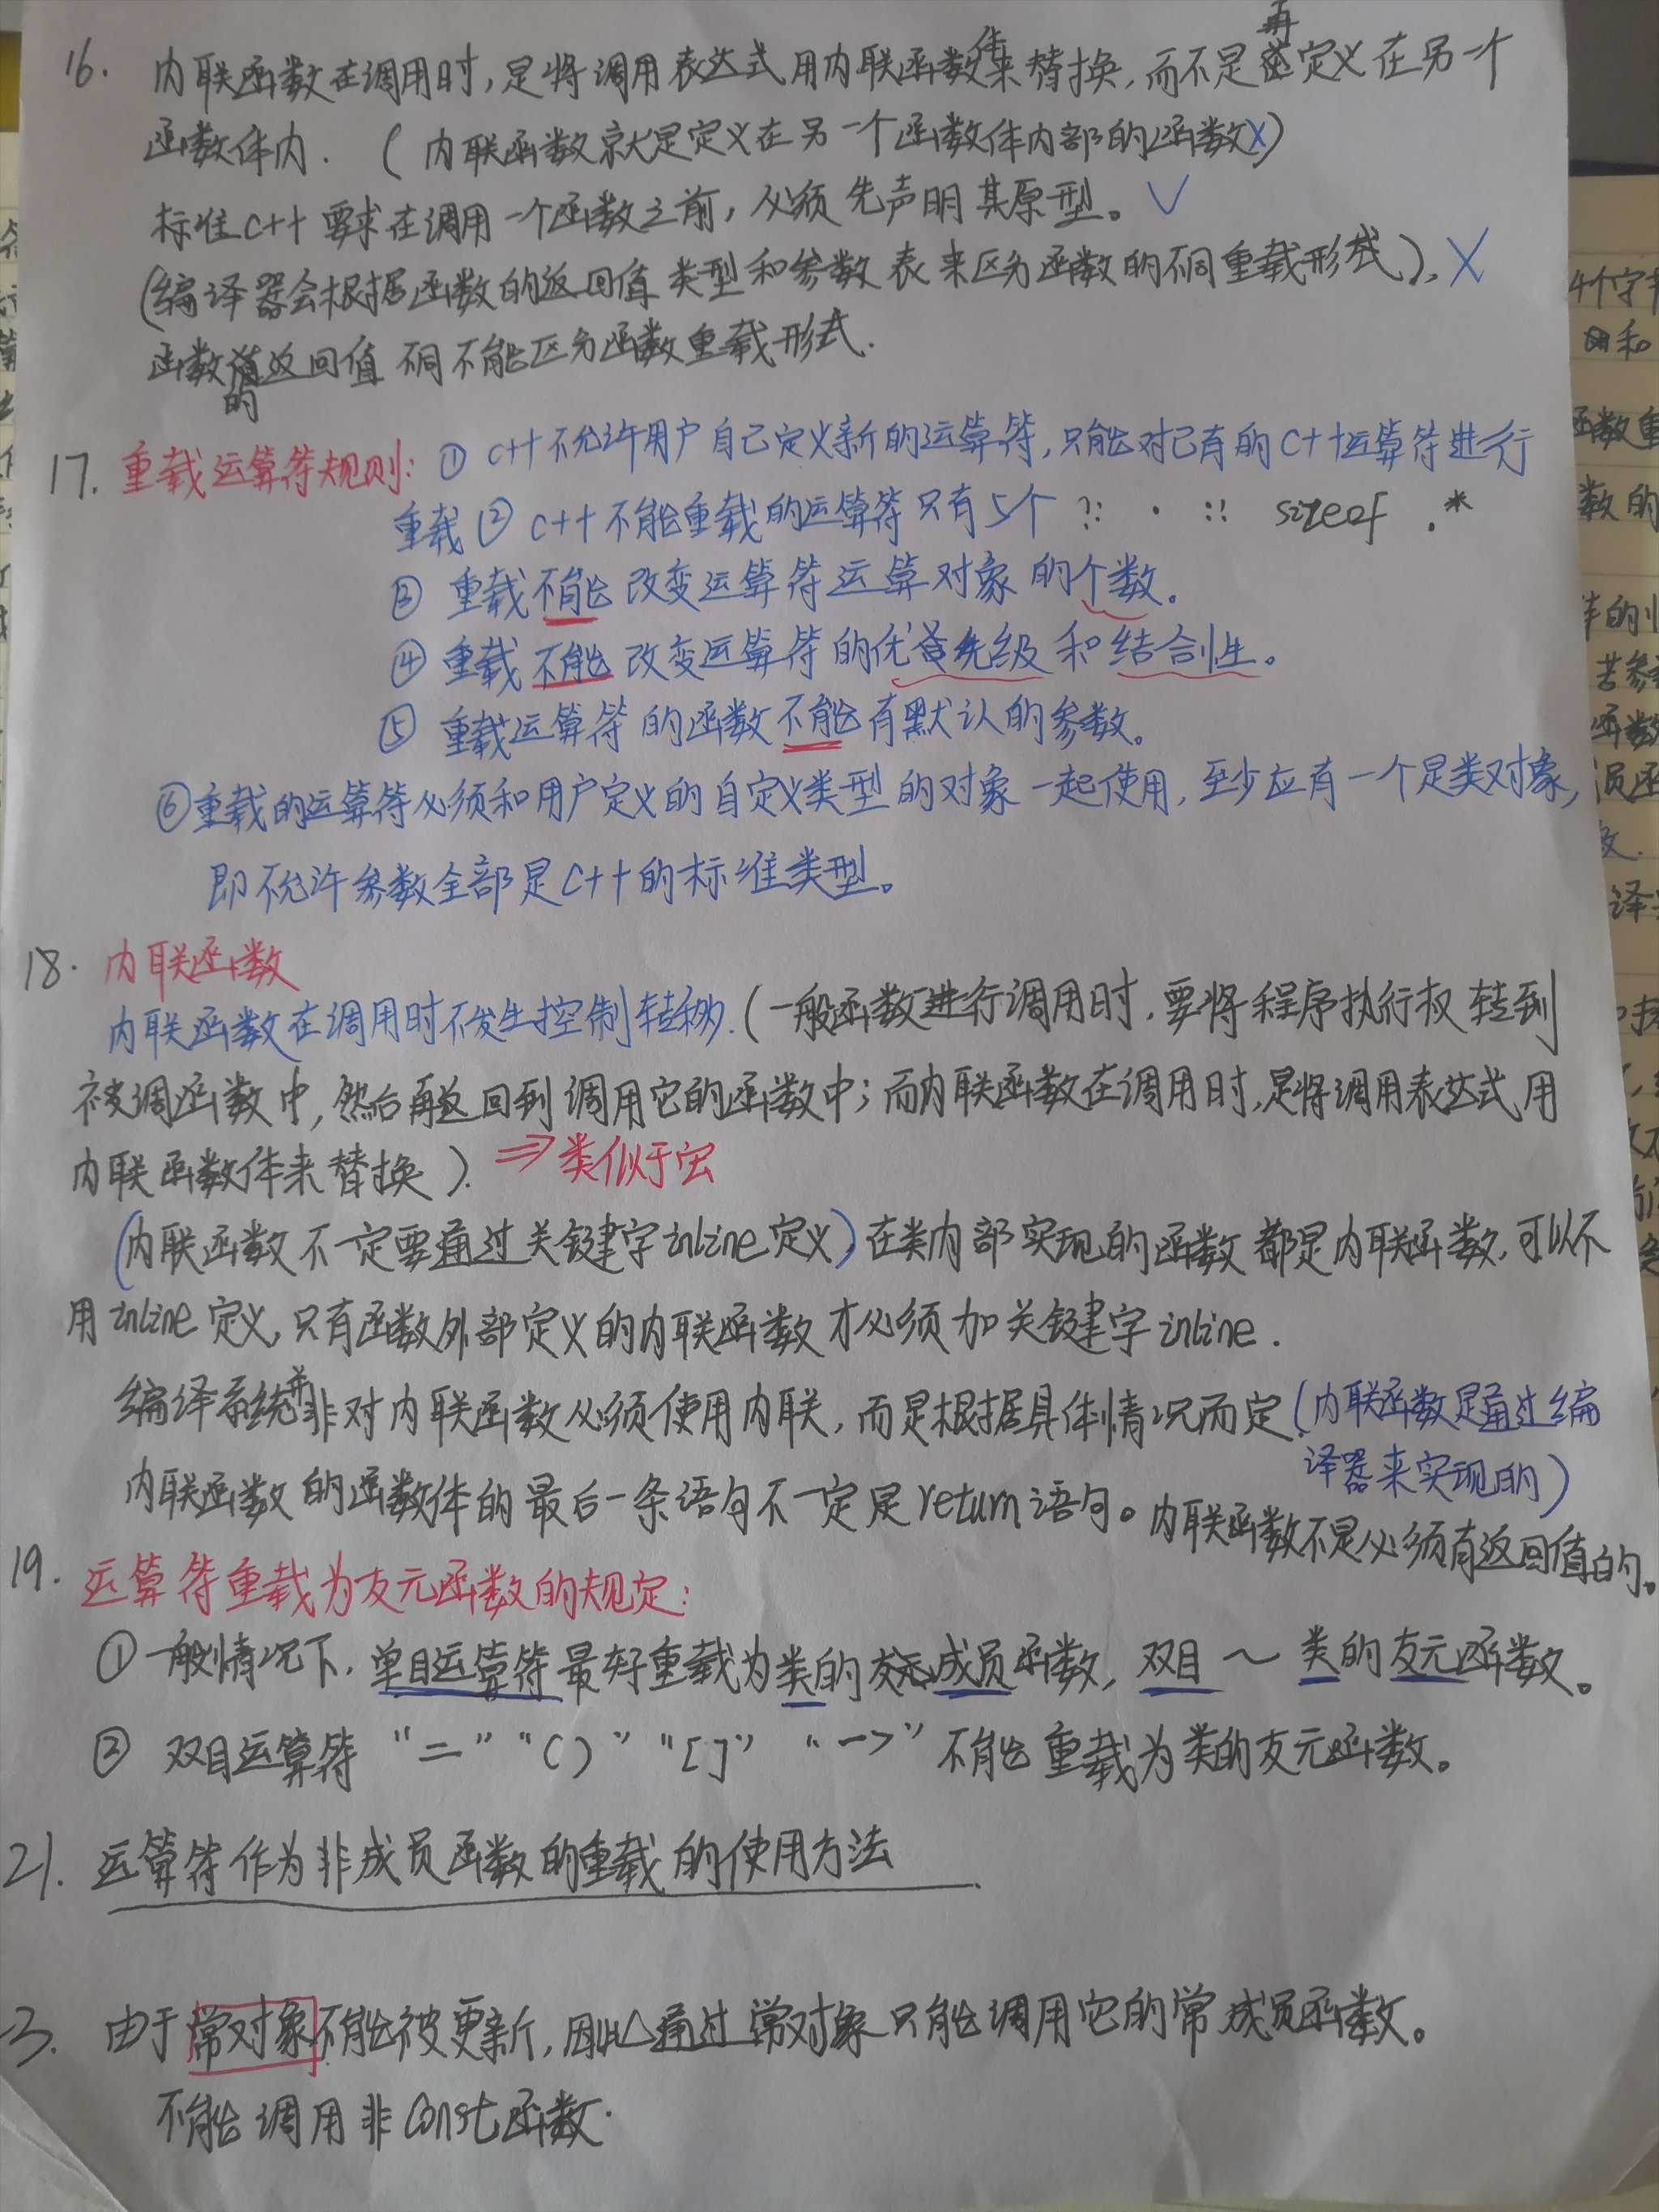 16. 内联函数在调用时,是将调用表达式用内联函数体来替换,而不是再定义在另一个
函数体内. (内联函数就是定义在另一个函数体内部的函数X)
标准C++要求在调用一个函数之前,必须先声明其原型。√
(编译器会根据函数的返回值类型和参数表来区分函数的不同重载形式). X
函数的返回值不同不能区分函数重载形式.
17. 重载运算符规则: ① C++不允许用户自己定义新的运算符,只能对已有的C++运算符进行
重载 ② C++不能重载的运算符只有5个 ?: . :: sizeof .*
③ 重载不能改变运算符运算对象的个数。
④ 重载不能改变运算符的优先级和结合性。
⑤ 重载运算符的函数不能有默认的参数。
⑥重载的运算符必须和用户定义的自定义类型的对象一起使用,至少应有一个是类对象,
即不允许参数全部是C++的标准类型。
18. 内联函数
内联函数在调用时不发生控制转移.(一般函数进行调用时,要将程序执行权转到
被调函数中,然后再返回到调用它的函数中;而内联函数在调用时,是将调用表达式用
内联函数体来替换). ⇒类似于宏
(内联函数不一定要通过关键字inline定义)在类内部实现的函数都是内联函数,可以不
用inline定义,只有函数外部定义的内联函数才必须加关键字inline.
编译系统并非对内联函数必须使用内联,而是根据具体情况而定.(内联函数是通过编
译器来实现的)
内联函数的函数体的最后一条语句不一定是return语句。内联函数不是必须有返回值的。
19. 运算符重载为友元函数的规定:
①一般情况下,单目运算符最好重载为类的成员函数,双目~类的友元函数。
② 双目运算符 “=” “()” “[]” “->” 不能重载为类的友元函数。
21. 运算符作为非成员函数的重载的使用方法
3. 由于常对象不能被更新,因此通过常对象只能调用它的常成员函数。
不能调用非const函数.